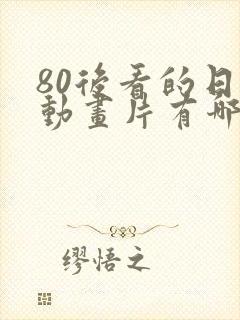 80後看的日
動畫片有哪
繆悟之